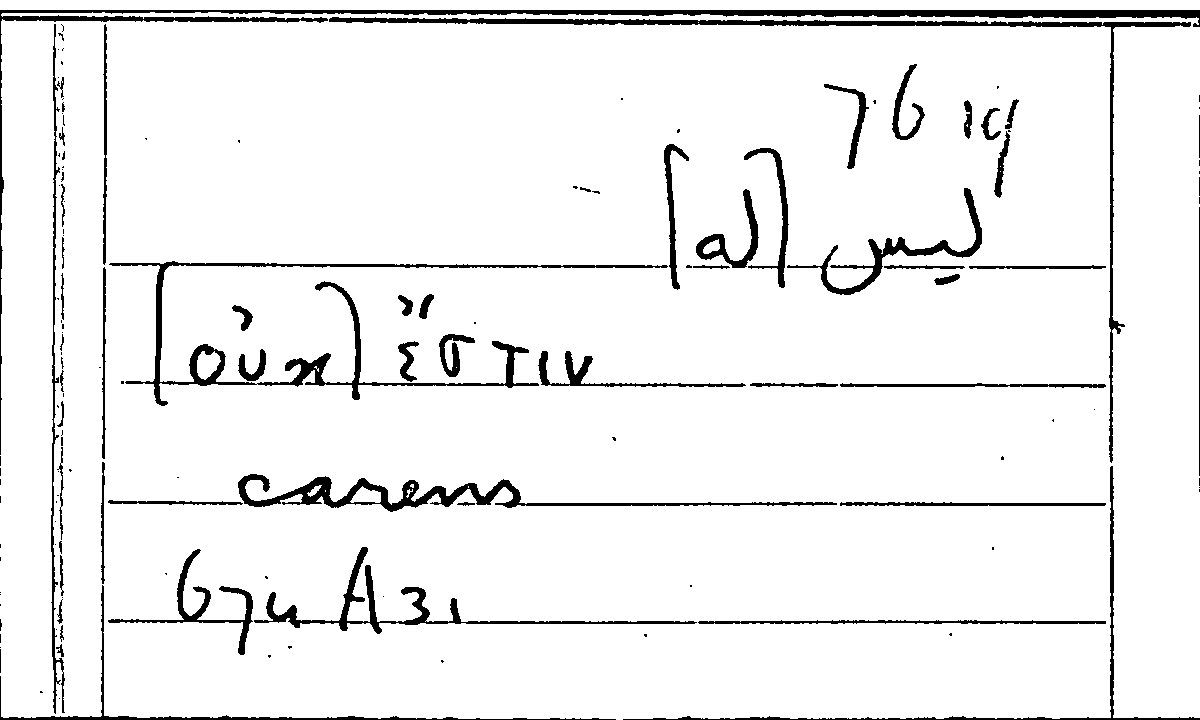 76 19
ليس [له]
[οὐκ] ἔστιν
carens
674 A31